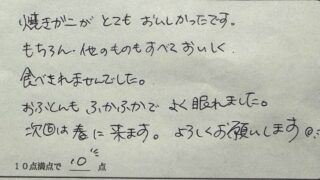 焼きガニが とても おいしかったです。
もちろん、他のものもすべておいしく
食べきれませんでした。
おふとんも ふかふかで よく眠れました。
次回は春に来ます。よろしくお願いします
10点満点で 10 点